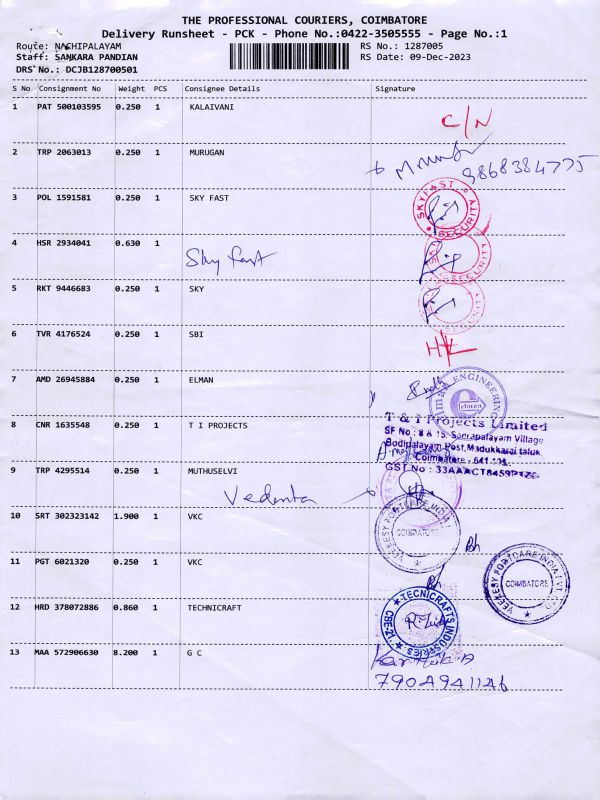 THE PROFESSIONAL COURIERS, COIMBATORE
Delivery Runsheet - PCK - Phone No.:0422-3505555 - Page No.:1
Route: NACHIPALAYAM RS No.: 1287005
Staff: SANKARA PANDIAN RS Date: 09-Dec-2023
DRS No.: DCJB128700501
S No Consignment No Weight PCS Consignee Details Signature
1 PAT 500103595 0.250 1 KALAIVANI
C/N
2 TRP 2063013 0.250 1 MURUGAN
9868384775
3 POL 1591581 0.250 1 SKY FAST
SKYFAST SECURITY
4 HSR 2934041 0.630 1
Sky fast
SECURITY
5 RKT 9446683 0.250 1 SKY
6 TVR 4176524 0.250 1 SBI
7 AMD 26945884 0.250 1 ELMAN
ENGINEERING
elman
8 CNR 1635548 0.250 1 T I PROJECTS
T & I Projects Limited
SF No : 8 & 15, Soorapalayam Village
Bodipalayam Post, Madukkarai taluk
Coimbatore - 641 105.
GST No : 33AAACT8459
9 TRP 4295514 0.250 1 MUTHUSELVI
Vedanta
10 SRT 302323142 1.900 1 VKC
VEEKESY POLYCARE INDIA
COIMBATORE
11 PGT 6021320 0.250 1 VKC
VEEKESY POLYCARE INDIA PVT. LTD
COIMBATORE
12 HRD 378072886 0.860 1 TECHNICRAFT
TECNICRAFTS INDUSTRIES
CBE-21
13 MAA 572906630 8.200 1 G C
Karthik
7904941146